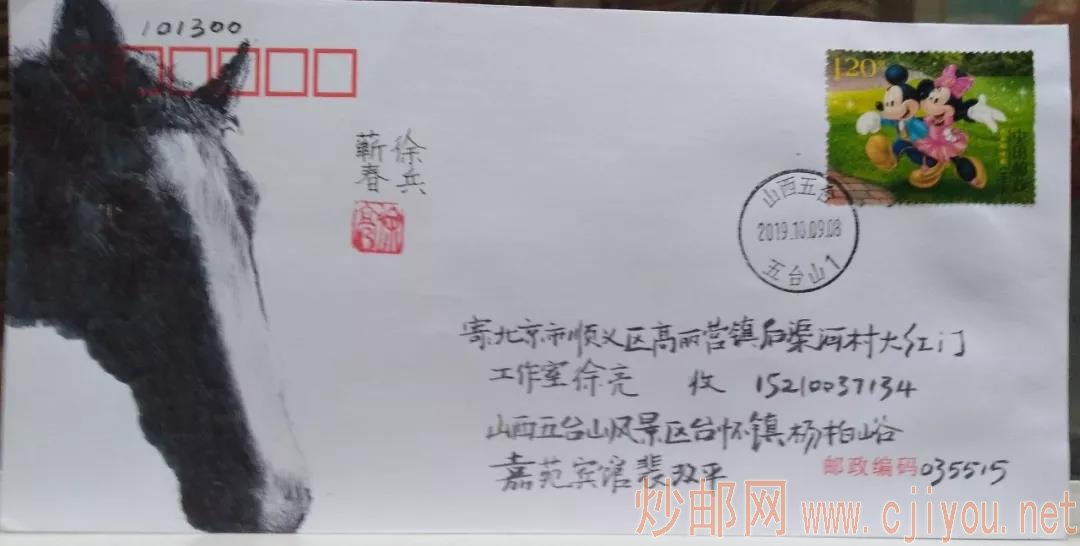 101300
1.20元
徐兵
蕲春
山西五台
2019.10.09.08
五台山1
寄北京市顺义区高丽营镇后渠河村大红门
工作室徐亮 收 15210037134
山西五台山风景区台怀镇杨柏峪
嘉苑宾馆裴双平
邮政编码035515
炒邮网 www.cjiyou.net